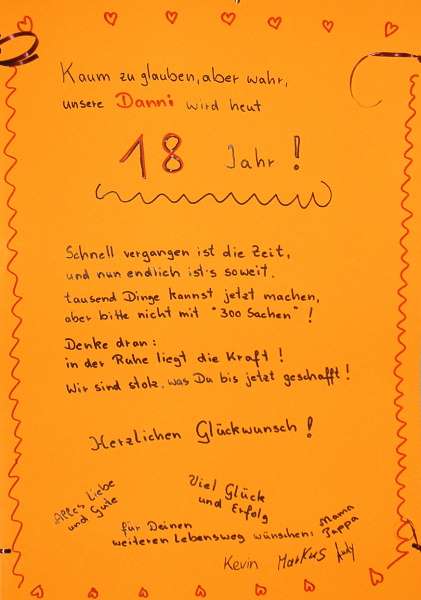 Kaum zu glauben, aber wahr,
unsere Danni wird heut
18 Jahr!
Schnell vergangen ist die Zeit,
und nun endlich ist's soweit.
tausend Dinge kannst jetzt machen,
aber bitte nicht mit "300 Sachen"!
Denke dran:
in der Ruhe liegt die Kraft!
Wir sind stolz, was Du bis jetzt geschafft!
Herzlichen Glückwunsch!
Alles Liebe
und Gute
Viel Glück
und Erfolg
für Deinen
weiteren Lebensweg wünschen:
Mama
Pappa
Kevin Markus